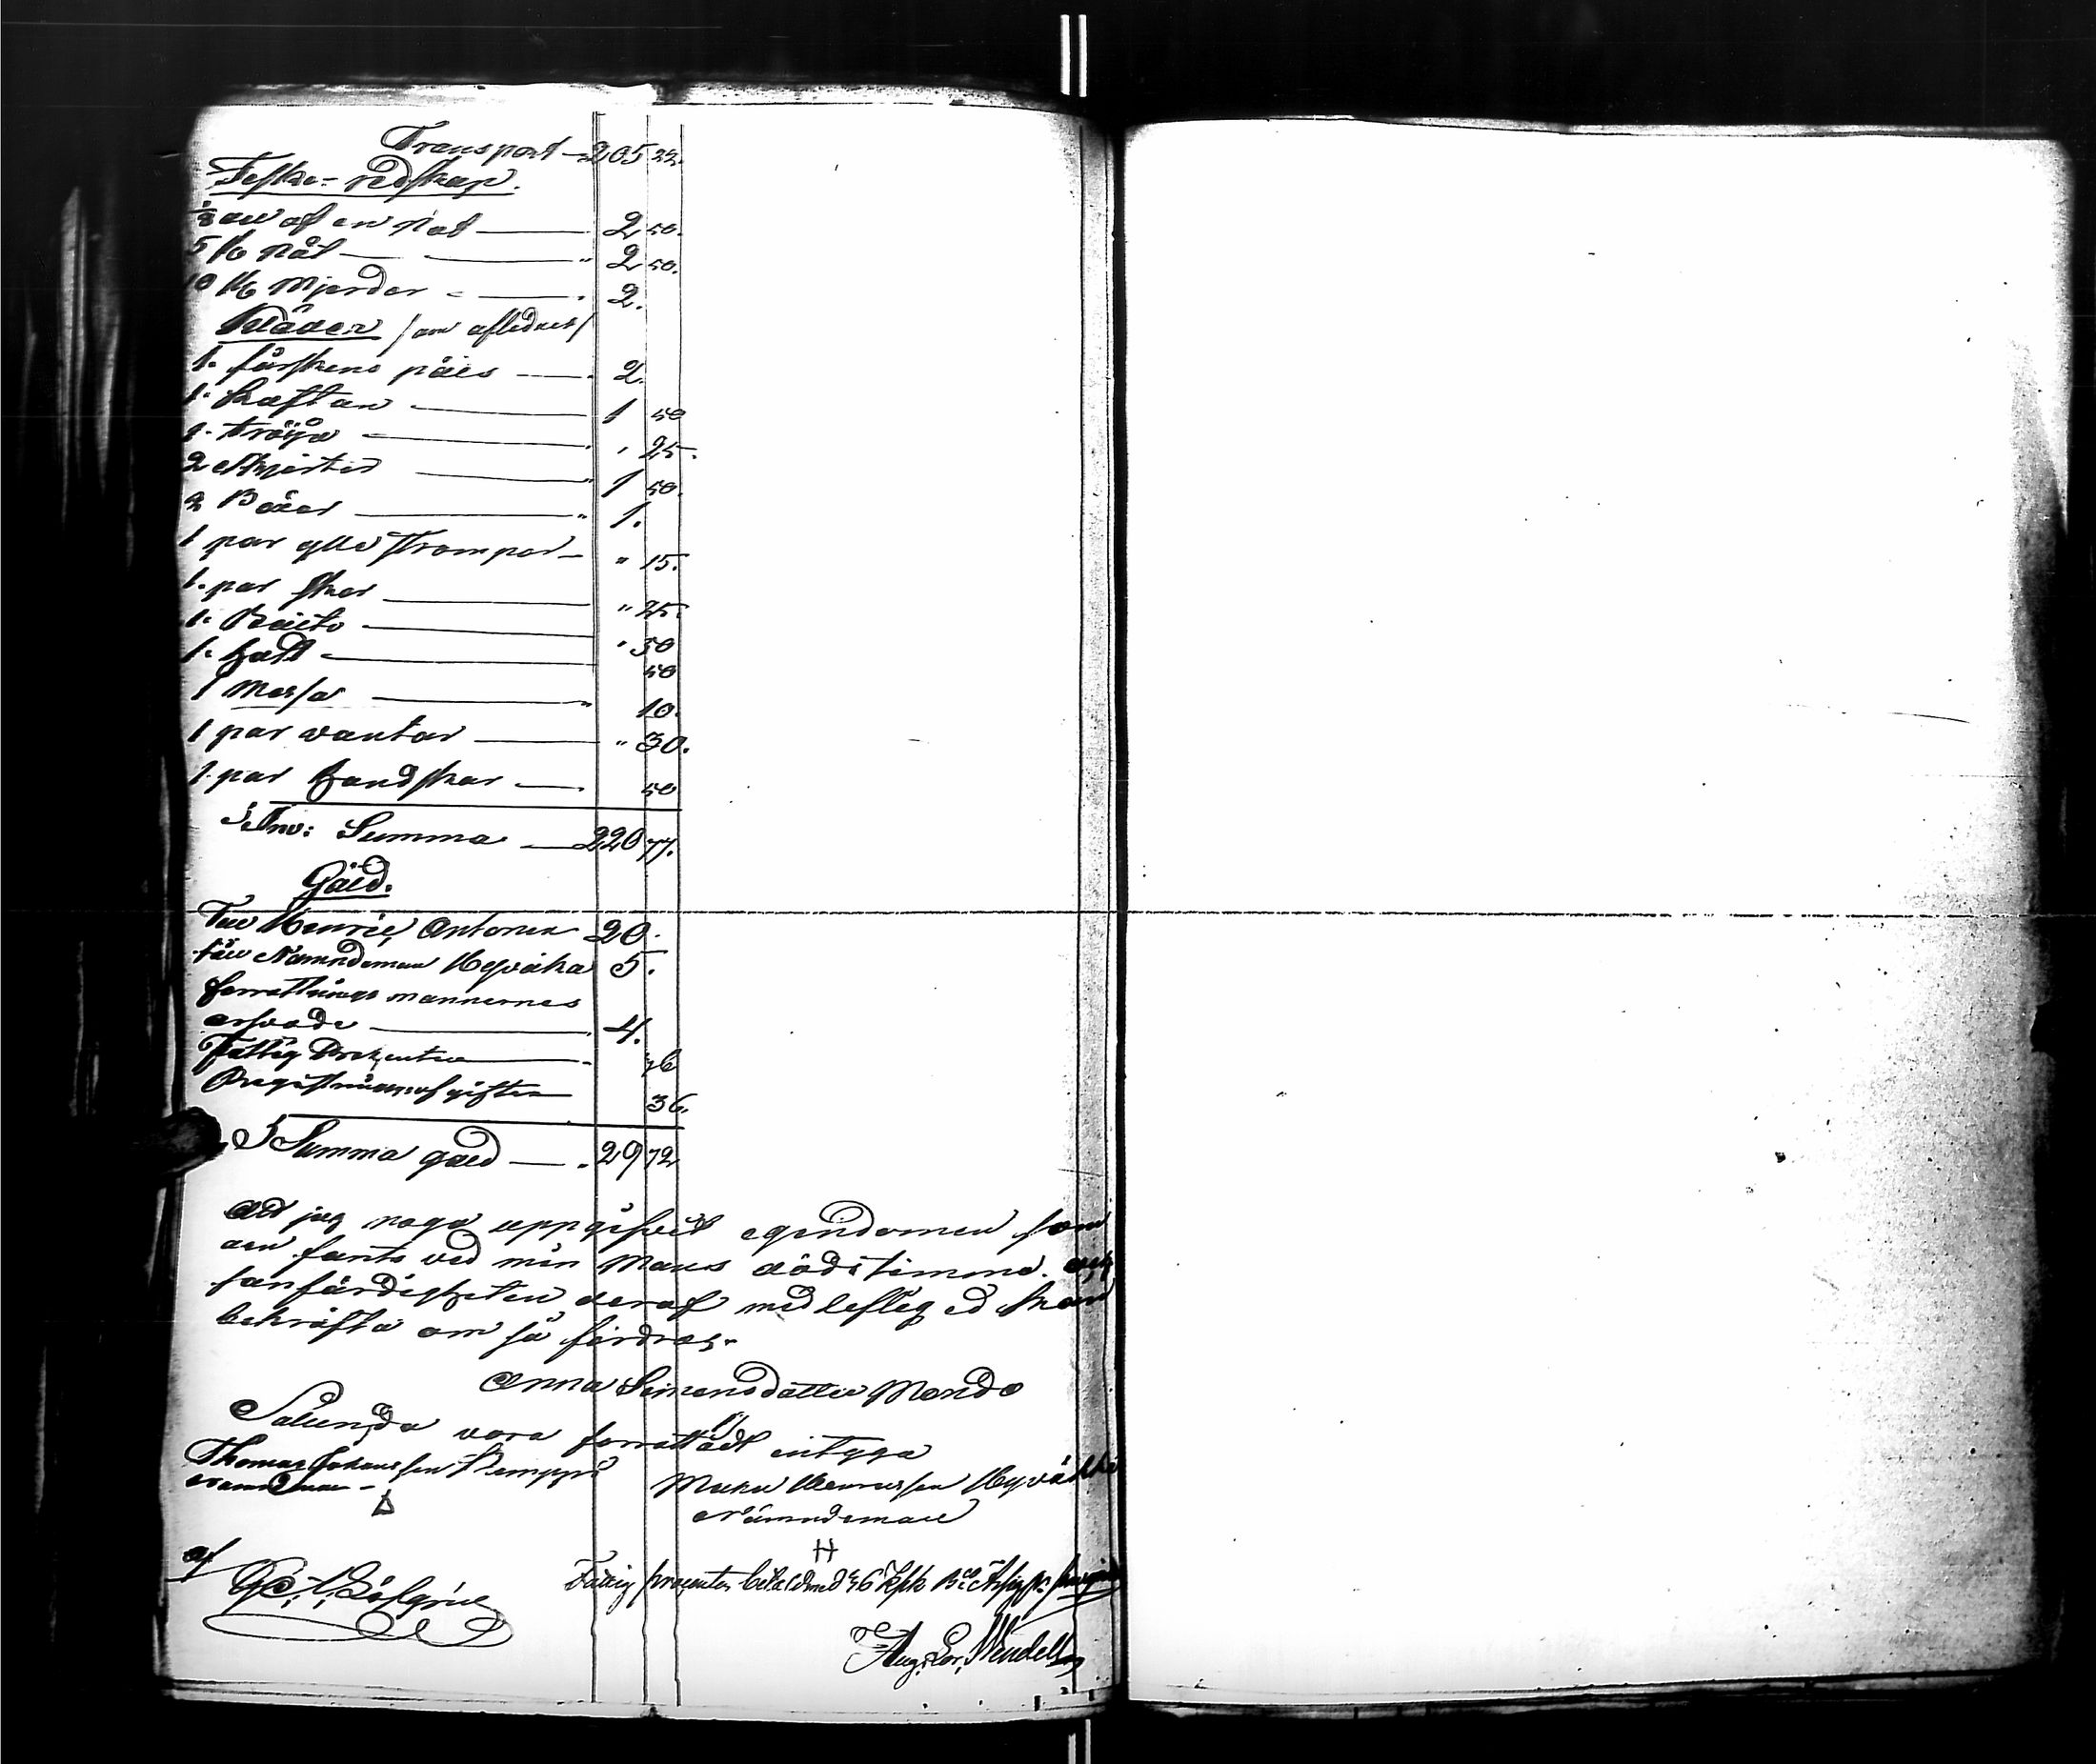 Transport — 205 22.
Feske-redskap.
1/8 del af en Not — 2 50.
5 st Nät — " 2 50.
10 st Mjerder — 2.
Kläder / av aflednes /
1. fårskens päls — 2.
1. Kaftan — 1 50
1. tröija — " 25.
2 Skjortor — " 1 50.
2 Böxor — " 1.
1 par ylle strompor — " 15.
1. par skor — " 25.
1. Bälte — " 50
1. hatt — 50
1 Mössa — " 10.
1 par vantar — " 30.
1. par handskar — 50
Inv: Summa — 220 77.
Gäld.
Till Henric Antonen 20.
till Nämndeman Hyväkä 5.
förrattnings mannernes
arfvode — 4.
Fattig Procenten — 36
Registrerings afgiften 36.
Summa gäld — 29 72
Att jag noga uppgifvit egendomen som
den fants vid min Mans dödstimma. och
sanfärdigheten deraf med liflig ed kan
bekräfta om så fordras.
Anna Simonsdotter Mando
Sålunda vara förrattadt intyga
Thomas Johansson Kemppi
Nämndeman
Δ
Henricsson Hyväkkä
Nämndeman
H
af
Fattig procenten betald med 36 kpk
Aug. Lor. Wendell